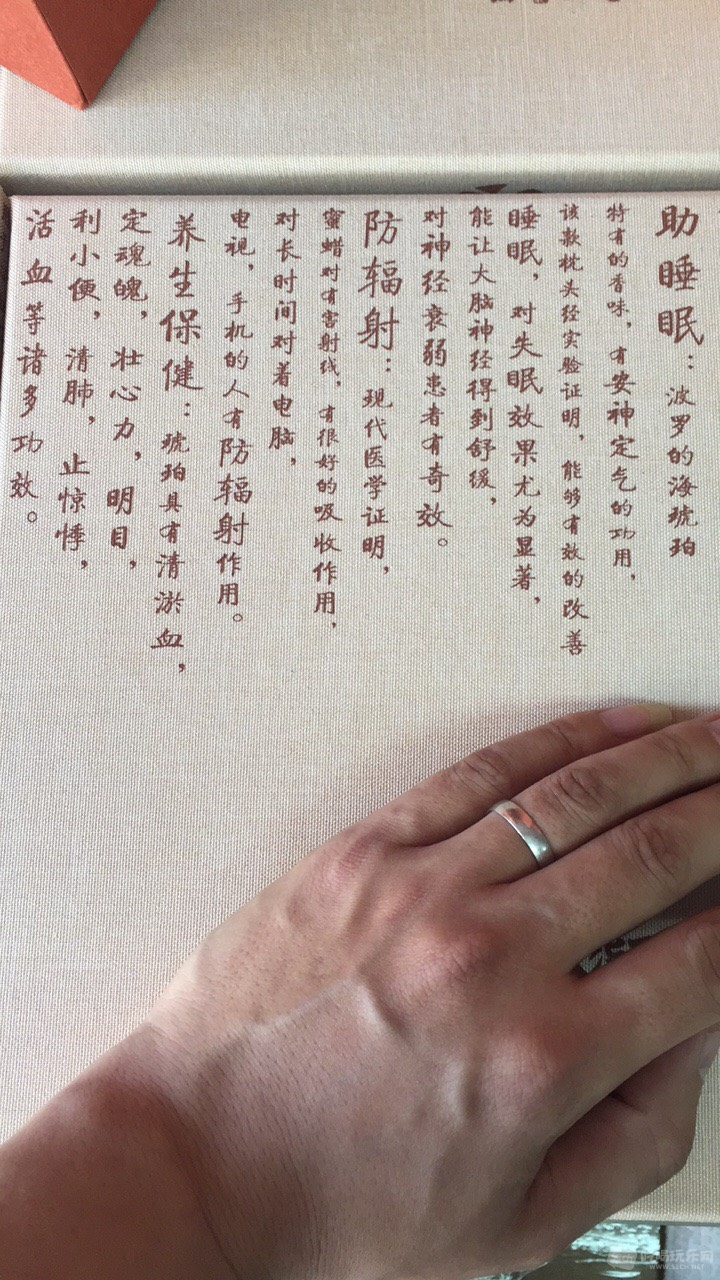 助睡眠：波罗的海琥珀
特有的香味，有安神定气的功用，
该款枕头经实验证明，能够有效的改善
睡眠，对失眠效果尤为显著，
能让大脑神经得到舒缓，
对神经衰弱患者有奇效。
防辐射：现代医学证明，
蜜蜡对有害射线，有很好的吸收作用，
对长时间对着电脑，
电视，手机的人有防辐射作用。
养生保健：琥珀具有清淤血，
定魂魄，壮心力，明目，
利小便，清肺，止惊悸，
活血等诸多功效。